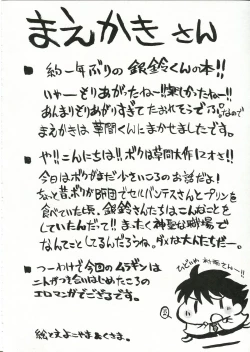 まえかきさん
■約一年ぶりの銀鈴くんの本!!
いやーもりあがったねー!!楽しかったねー!!
あんまりもりあがりすぎてたおれそうでぷ。なので
まえかきは草間くんにまかせましたです。
■や!!こんにちは!!ボクは草間大作12才さ!!
今日はボクがまだ少さいころのお話だよ!
ちょっと昔、ボクが師団でセルバンテスさんとプリンを
食べていた頃、銀鈴さんたちはこんなことを
していたんだって!!まったく神聖な職場で
なんてことしてるんだろうね。ダメな大人たちだー。
■つーわけで今回のムラギンは
二人がつき合いはじめたころの
エロマンガでござるです。
絵と文よこやま